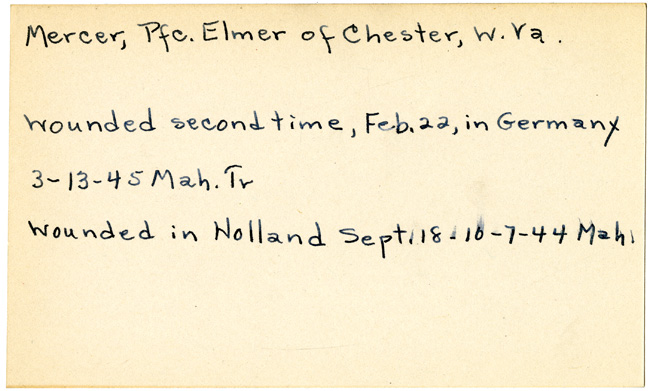 Mercer, Pfc. Elmer of Chester, W. Va.
Wounded second time, Feb. 22, in Germany
3-13-45 Mah. Tr
Wounded in Holland Sept. 18 - 10-7-44 Mah.